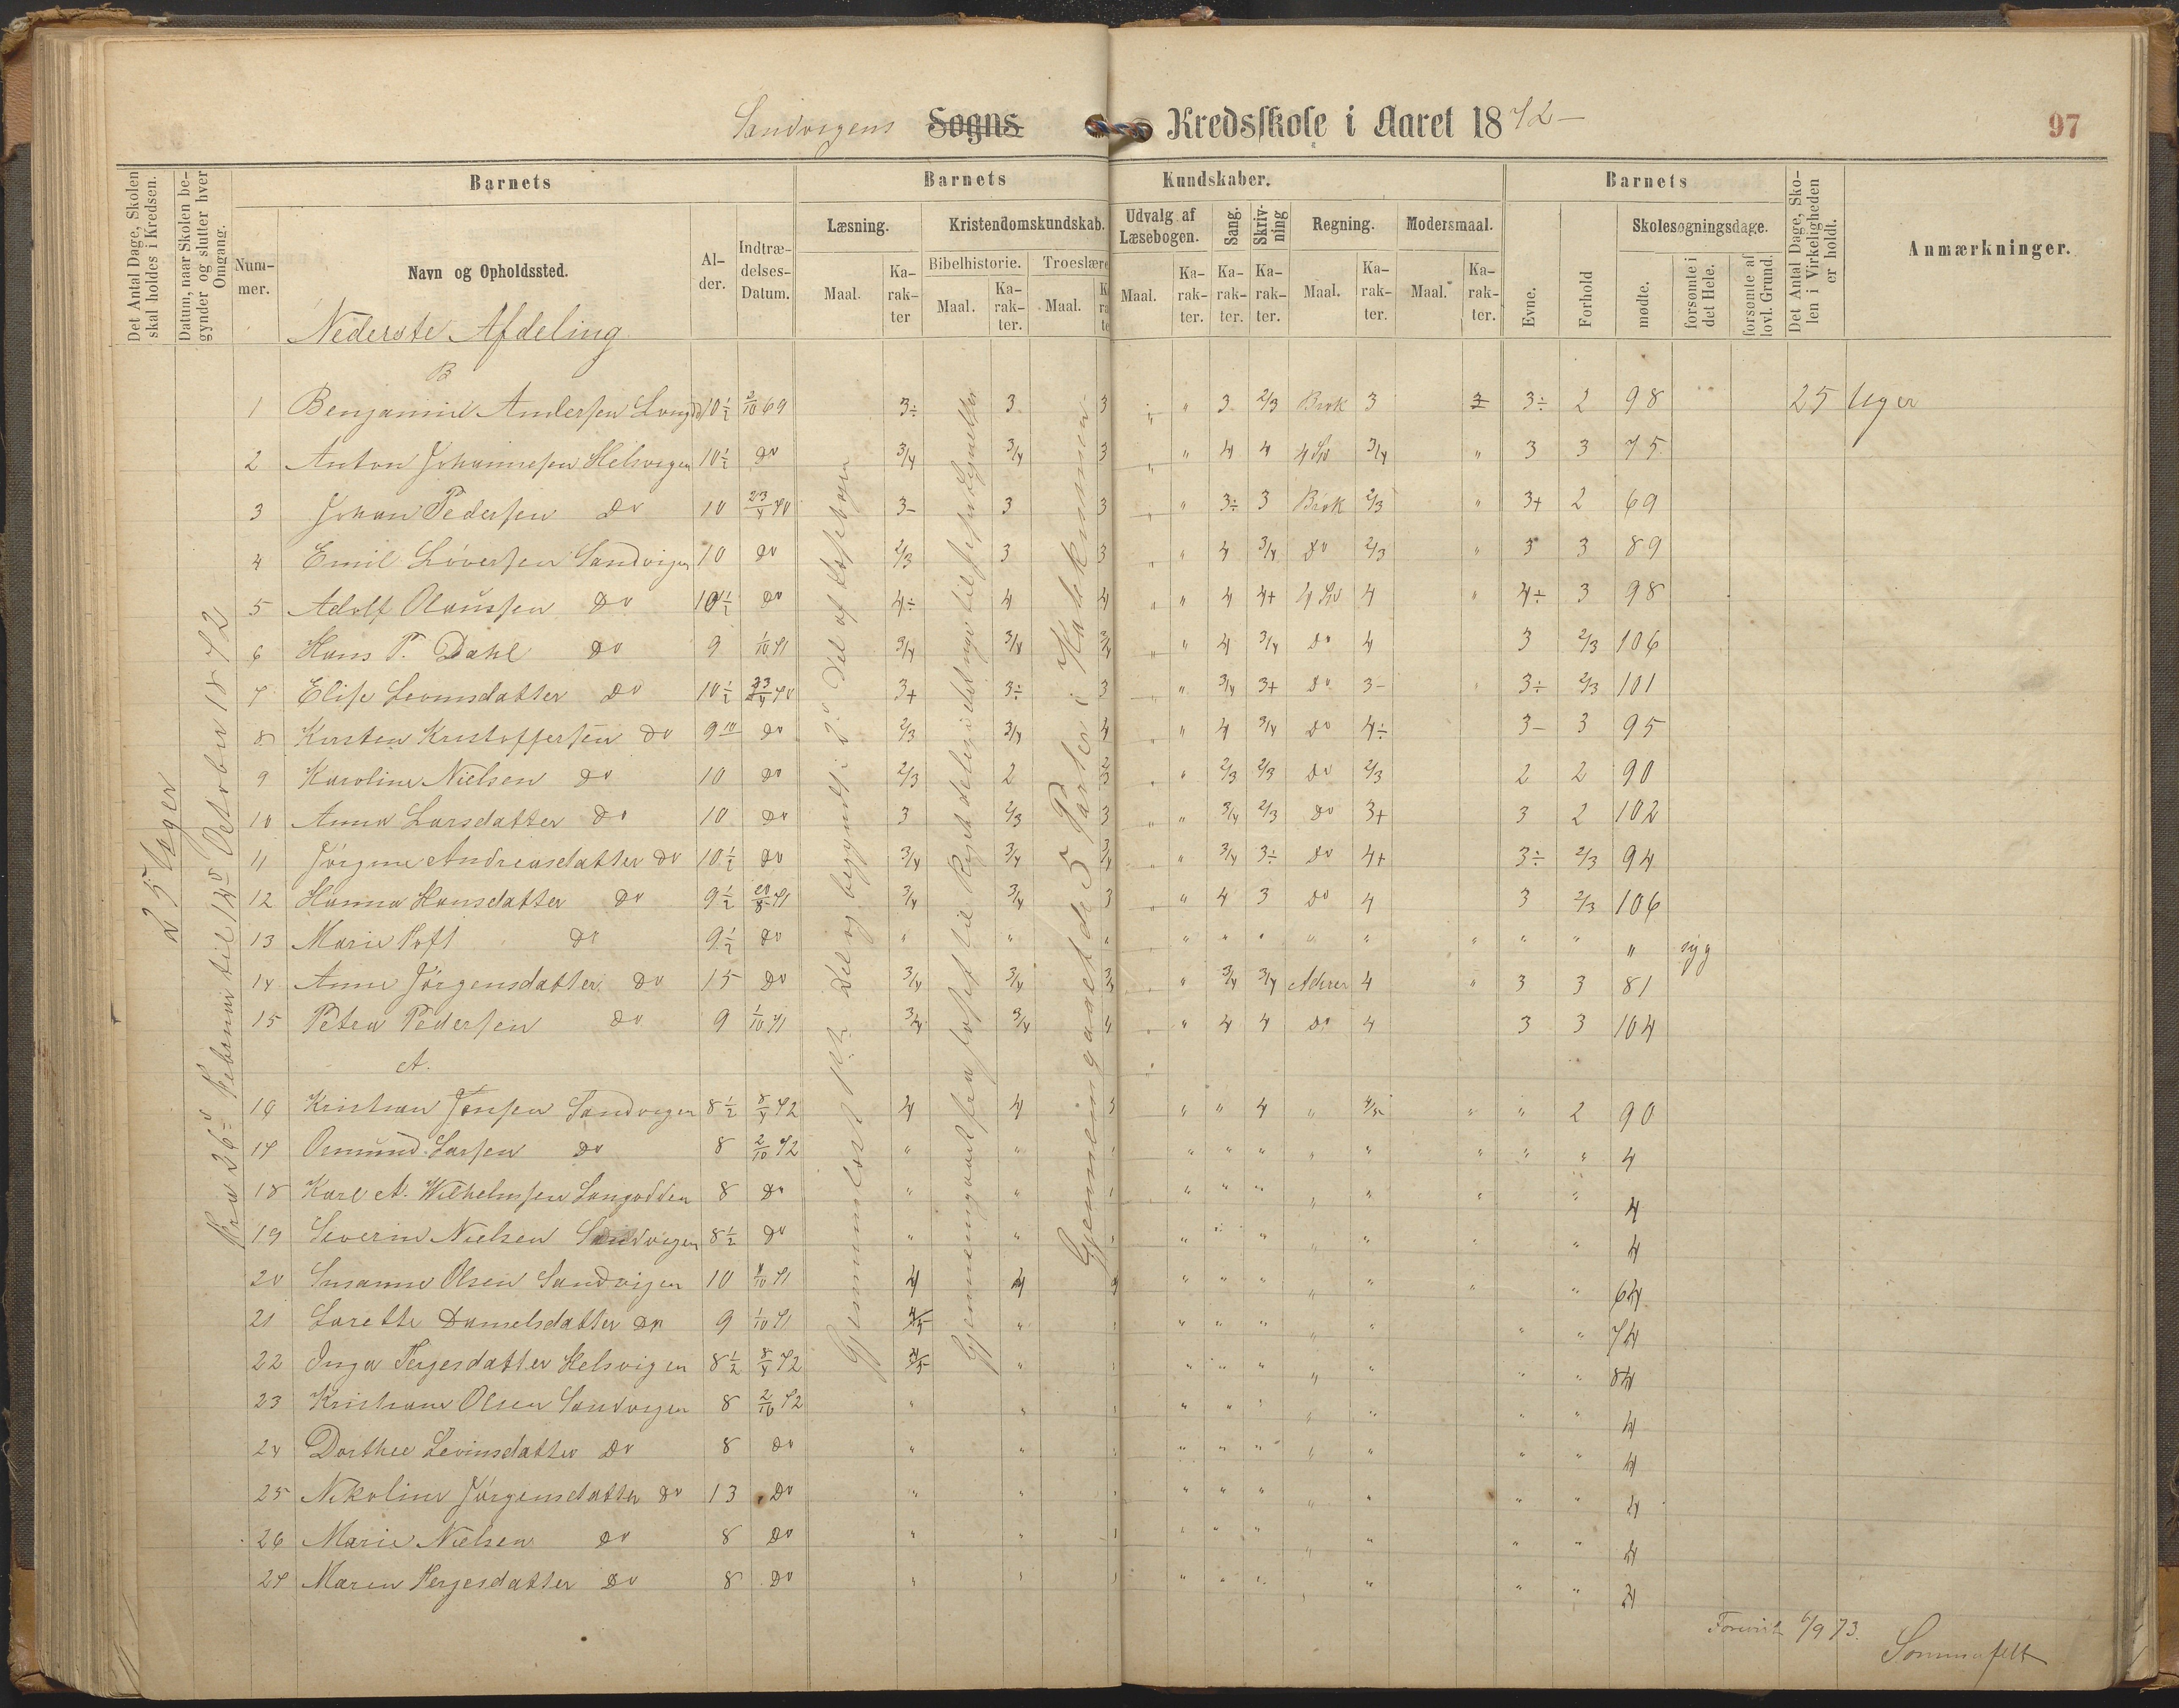 Sandvigens Sogns Kredsskole i Aaret 1872 97
Det Antal Dage, Skolen skal holdes i Kredsen.
Datum, naar Skolen begynder og slutter hver Omgang.
Barnets
Nummer.
Navn og Opholdssted.
Alder.
Indtrædelses-Datum.
Barnets Kundskaber.
Læsning.
Maal.
Karakter
Kristendomskundskab.
Bibelhistorie.
Maal.
Karakter.
Troeslære
Maal.
Udvalg af Læsebogen.
Maal.
Karakter.
Sang.
Karakter.
Skrivning
Karakter.
Regning.
Maal.
Karakter.
Modersmaal.
Maal.
Karakter.
Barnets
Evne.
Forhold
Skolesøgningsdage.
mødte.
forsømte i det Hele.
forsømte af lovl. Grund.
Det Antal Dage, Skolen i Virkeligheden er holdt.
Anmærkninger.
Nederste Afdeling
B
25 Uger
Fra 26d Februar til 12d October 1872
Gjennemlæst 1ste Del og begyndt i 2d Del af Læsebogen
Gjennemgaaet de 5 Parter i Katekismen
1 Benjamin Andersen 10½ 2/10 69 3÷ 3 3 " 3 2/3 Brøk 3 3÷ 2 98 25 Uger
2 Anton Johannesen Helsvigen 10½ do 3/4 3/4 3 " 4 4 3/4 " 3 3 75
3 Johan Pedersen do 10 23/4 70 3- 3 3 " 3÷ 3 Brøk 2/3 " 3+ 2 69
4 Emil Sivertsen Sandvigen 10 do 2/3 3 3 " 4 3/4 do 2/3 " 3 3 89
5 Adolf Olaussen do 10½ do 4÷ 4 4 " 4 4+ 4 " 4÷ 3 98
6 Hans P. Dahl do 9 1/10 71 3/4 3/4 3/4 " 4 3/4 do 4 3 2/3 106
7 Elise Levinsdatter do 10½ 23/4 70 3+ 3÷ 3 " 3/4 3+ do 3- 3÷ 2/3 101
8 Kirsten Kristoffersen do 9 do 2/3 3/4 4 " 4 3/4 do 4÷ 3- 3 95
9 Karoline Nielsen do 10 do 2/3 2 2/3 " 2/3 2/3 do 2/3 2 2 90
10 Anna Larsdatter do 10 do 3 2/3 3 " 3/4 2/3 do 3+ 3 2 102
11 Jørgine Andreasdatter do 10½ do 3/4 3/4 3/4 " 3/4 3÷ do 4+ 3÷ 2/3 94
12 Hanna Hansdatter do 9½ 71 3/4 3/4 3 " 4 3 do 4 3 2/3 106
13 Marie do 9½ do " " " " " " " " " " " " syg
14 Anne Jørgensdatter do 15 do 3/4 3/4 3/4 " 3/4 3/4 Adrer 4 " 3 3 81
15 Petra Pedersen do 9 1/10 71 3/4 3/4 4 " 4 4 do 4 3 3 104
A.
16 Kristian Jensen Sandvigen 8½ 8/4 72 4 4 3 " " 4 " 4/5 " " 2 90
17 Osmund Larsen do 8 2/10 72 " " " " " " " " " " 4
18 Karl A. Wilhelmsen Langodden 8 do " " " " " " " " " 4
19 Severin Nielsen Sandvigen 8½ do " " " " " " " " 4
20 Susanne Olsen Sandvigen 10 71 4 4 " " " " " " " 64
21 Lorette Danielsdatter do 9 1/10 71 4/5 " " " " " " " " 74
22 Inga Tergesdatter Helsvigen 8½ 8/4 72 4/5 " " " " " " " " 84
23 Kristiane Olsen Sandvigen 8 2/10 72 " " " " " " " " " 4
24 Dorthee Levinsdatter do 8 do " " " " " " " " " 4
25 Nikoline Jørgensdatter do 13 do " " " " " " " " " 4
26 Marie Nielsen do 8 do " " " " " " " " " 4
27 Maren Tergesdatter do 8 do " " " " " " " " 4
Forevist 6/9 73.
Sommerfelt